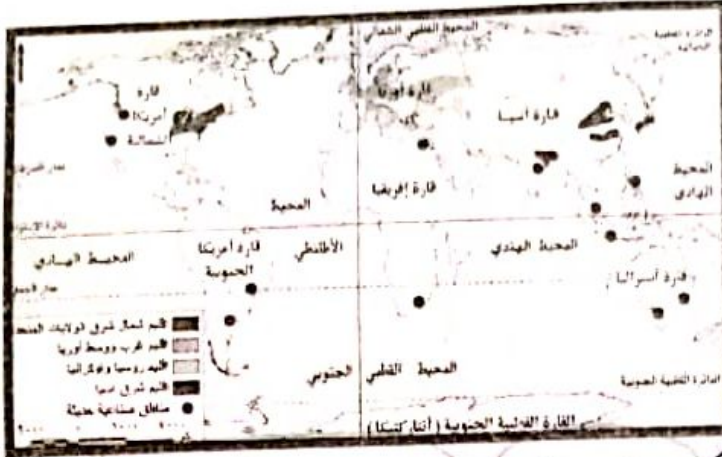 المحيط القطبي الشمالي
الدائرة القطبية
الشمالية
قارة
أمريكا
الشمالية
قارة أوربا
قارة آسيا
المحيط
الهادي
قارة إفريقيا
المحيط
الأطلنطي
قارة أمريكا
الجنوبية
المحيط الهادي
المحيط الهندي
قارة أستراليا
إقليم شمال شرق الولايات المتحدة
إقليم غرب ووسط أوربا
إقليم روسيا وأوكرانيا
إقليم شرق آسيا
مناطق صناعية حديثة
المحيط القطبي الجنوبي
الدائرة القطبية الجنوبية
القارة القطبية الجنوبية (أنتاركتيكا)
كم